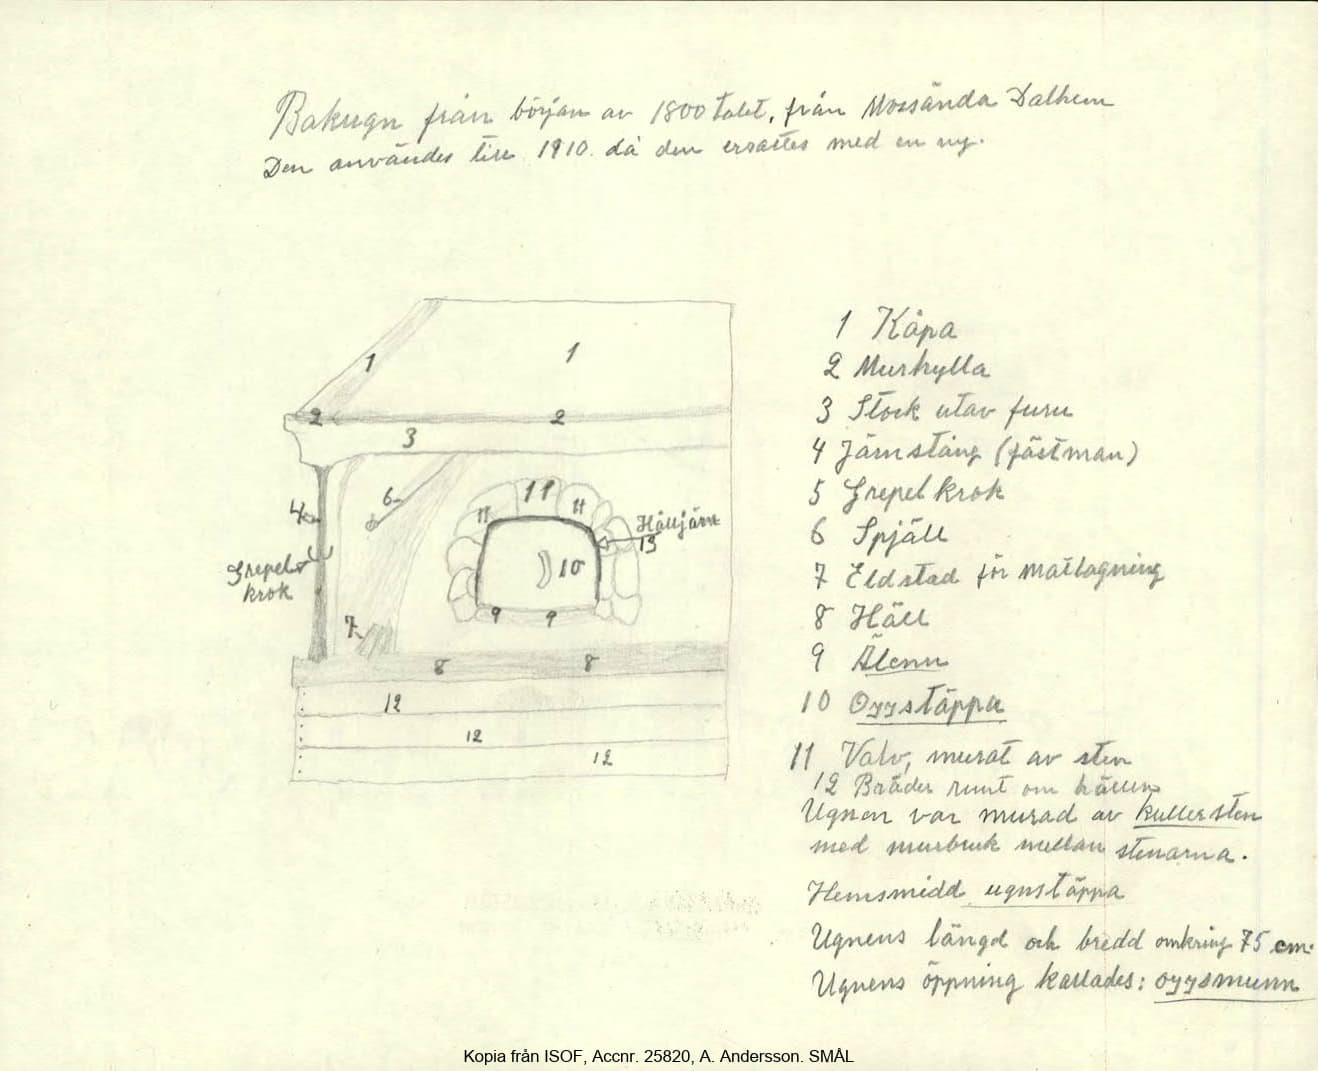 Bakugn från början av 1800 talet, från Mossända Dalhem
Den användes till 1910. då den ersattes med en ny.
1
1
2
2
3
4
6
11
11
11
Hälljärn
13
10
Grepel
krok
9
9
7
8
8
12
12
12
1 Kåpa
2 Murhylla
3 Stock utav furu
4 Järnstång (fästman)
5 Grepel krok
6 Spjäll
7 Eldstad för matlagning
8 Häll
9 Älenn
10 Oggstäppa
11 Valv, murat av sten
12 Bräder runt om hällen
Ugnen var murad av kullersten
med murbruk mellan stenarna.
Hemsmidd ugnstäppa
Ugnens längd och bredd omkring 75 cm.
Ugnens öppning kallades: oggsmunn
Kopia från ISOF, Accnr. 25820, A. Andersson. SMÅL